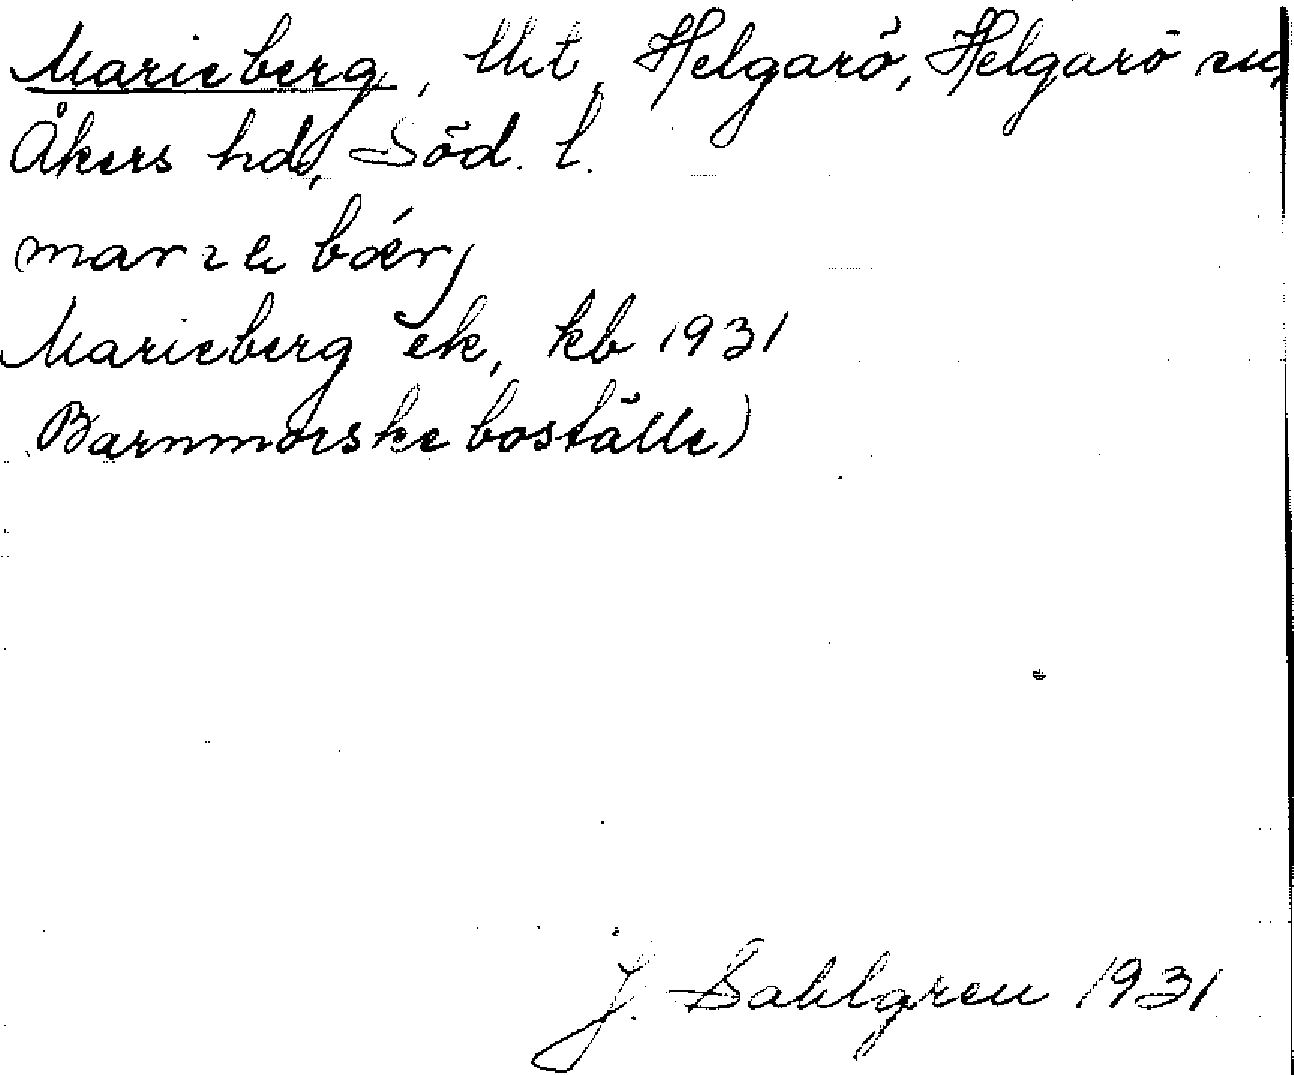 Marieberg, lht, Helgarö, Helgarö sn,
Åkers hd, Söd. l.
Marieberg ek, kb 1931
Barnmorskeboställe)
J. Sahlgren 1931